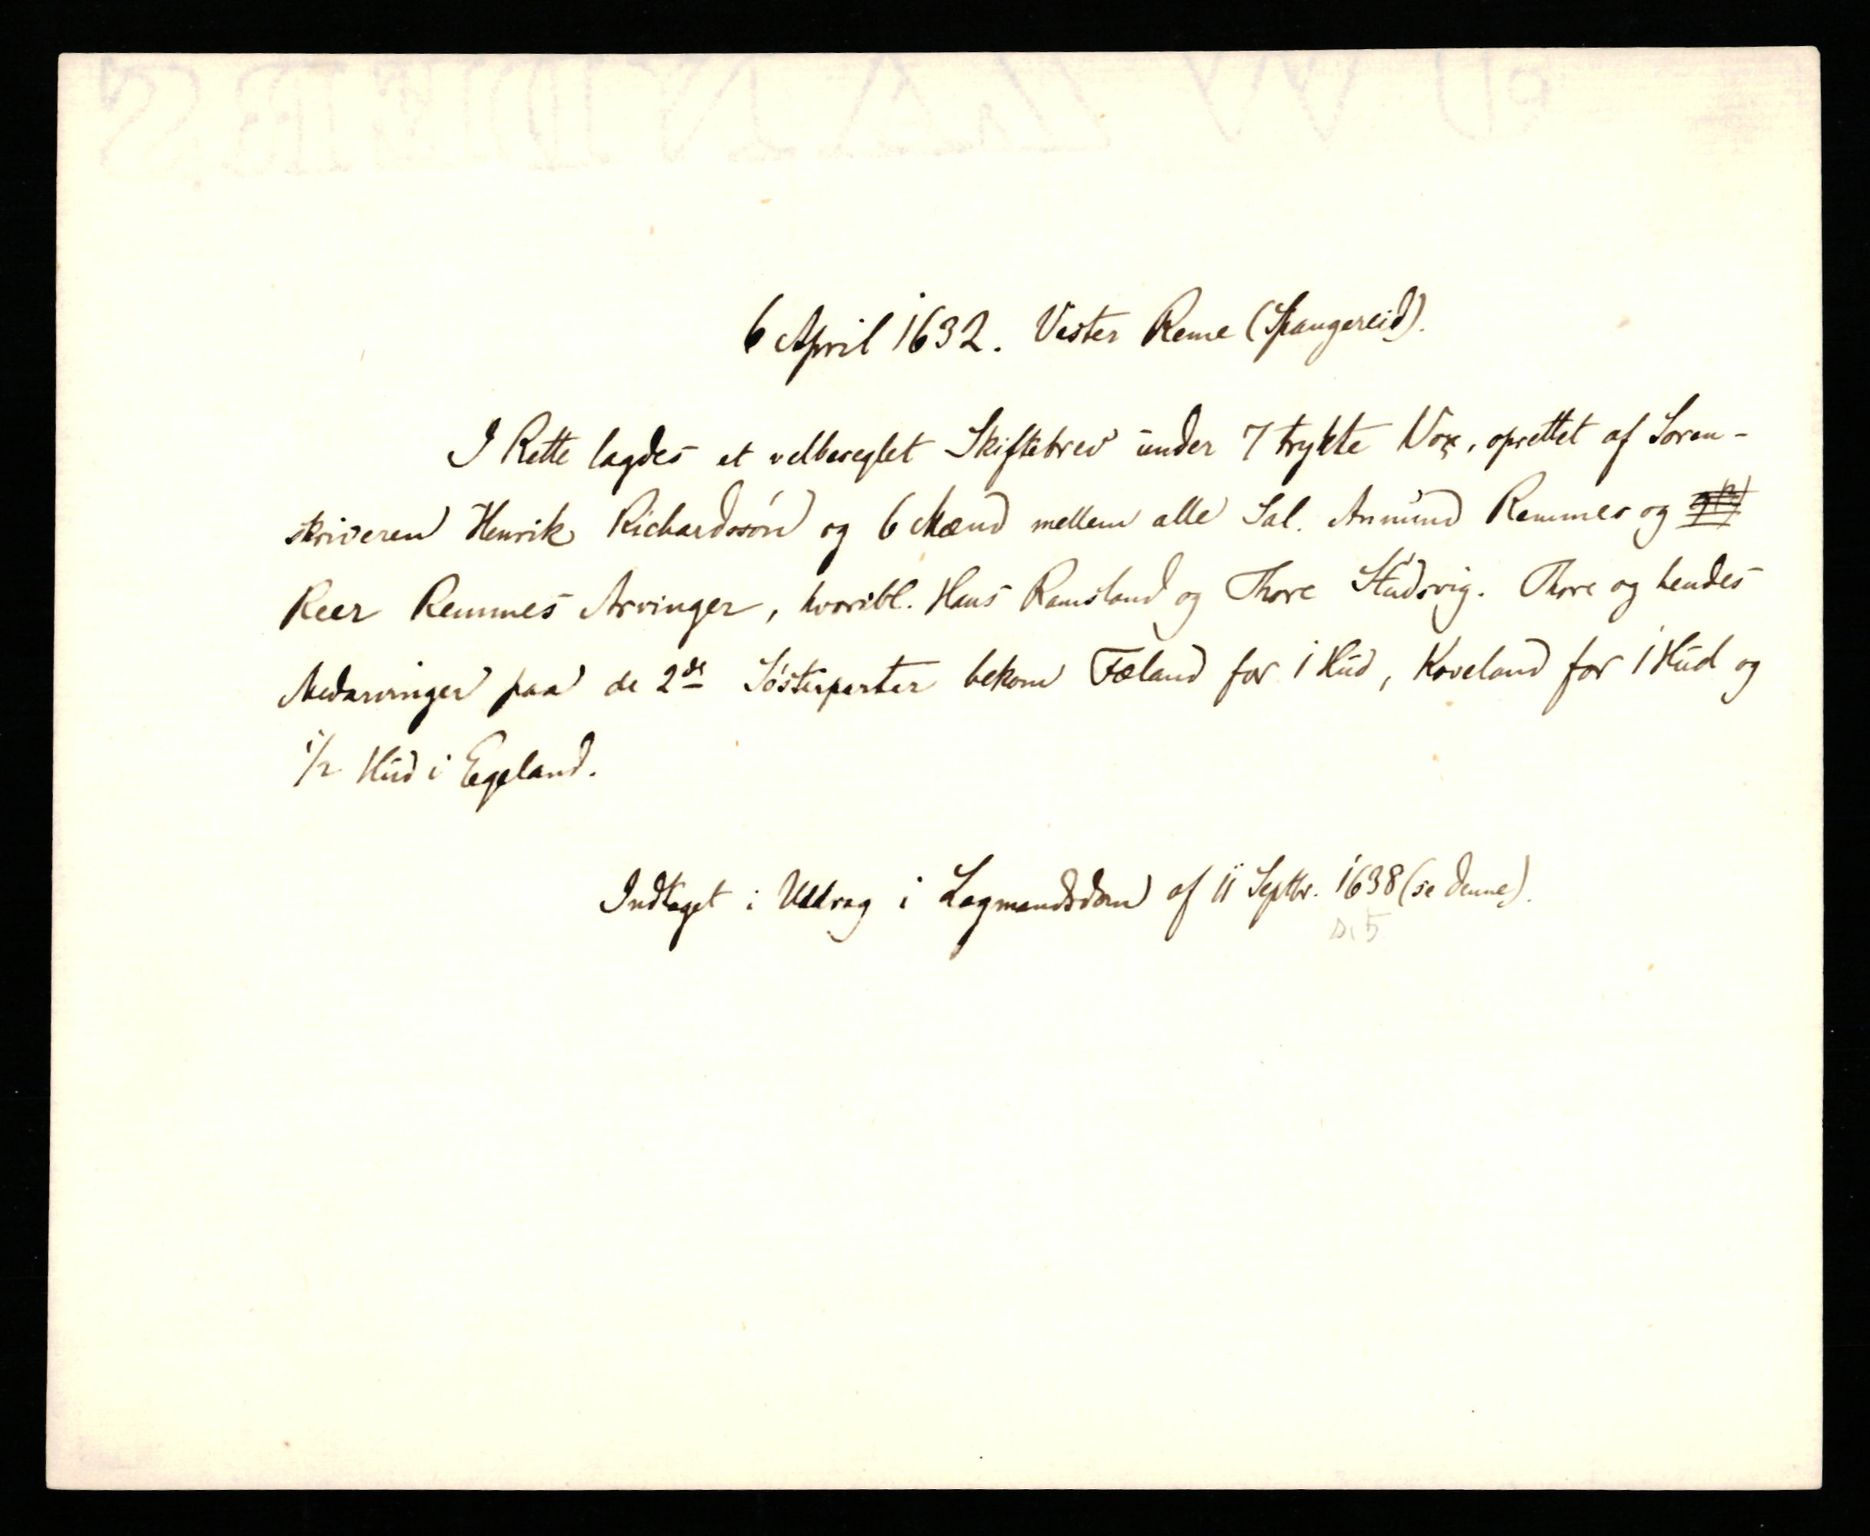 6 April 1632. Vester Reme (Spangereid).
I Rette lagdes et velbeseglet Skiftebrev under 7 trykte Vox, oprettet af Soren-
skriveren Henrik Richardssøn og 6 Mænd mellem alle Sal. Anmund Remmes og
Reer Remmes Arvinger, hvoribl. Hans Ramsland og Thore Studsvig. Thore og hendes
Medarvinger paa de 2de Søsterparter bekom Fæland for 1 Hud, Koveland for 1 Hud og
1/2 Hud i Egeland.
Indtaget i Uddrag i Lagmandsdom af 11 Septbr. 1638 (se denne).